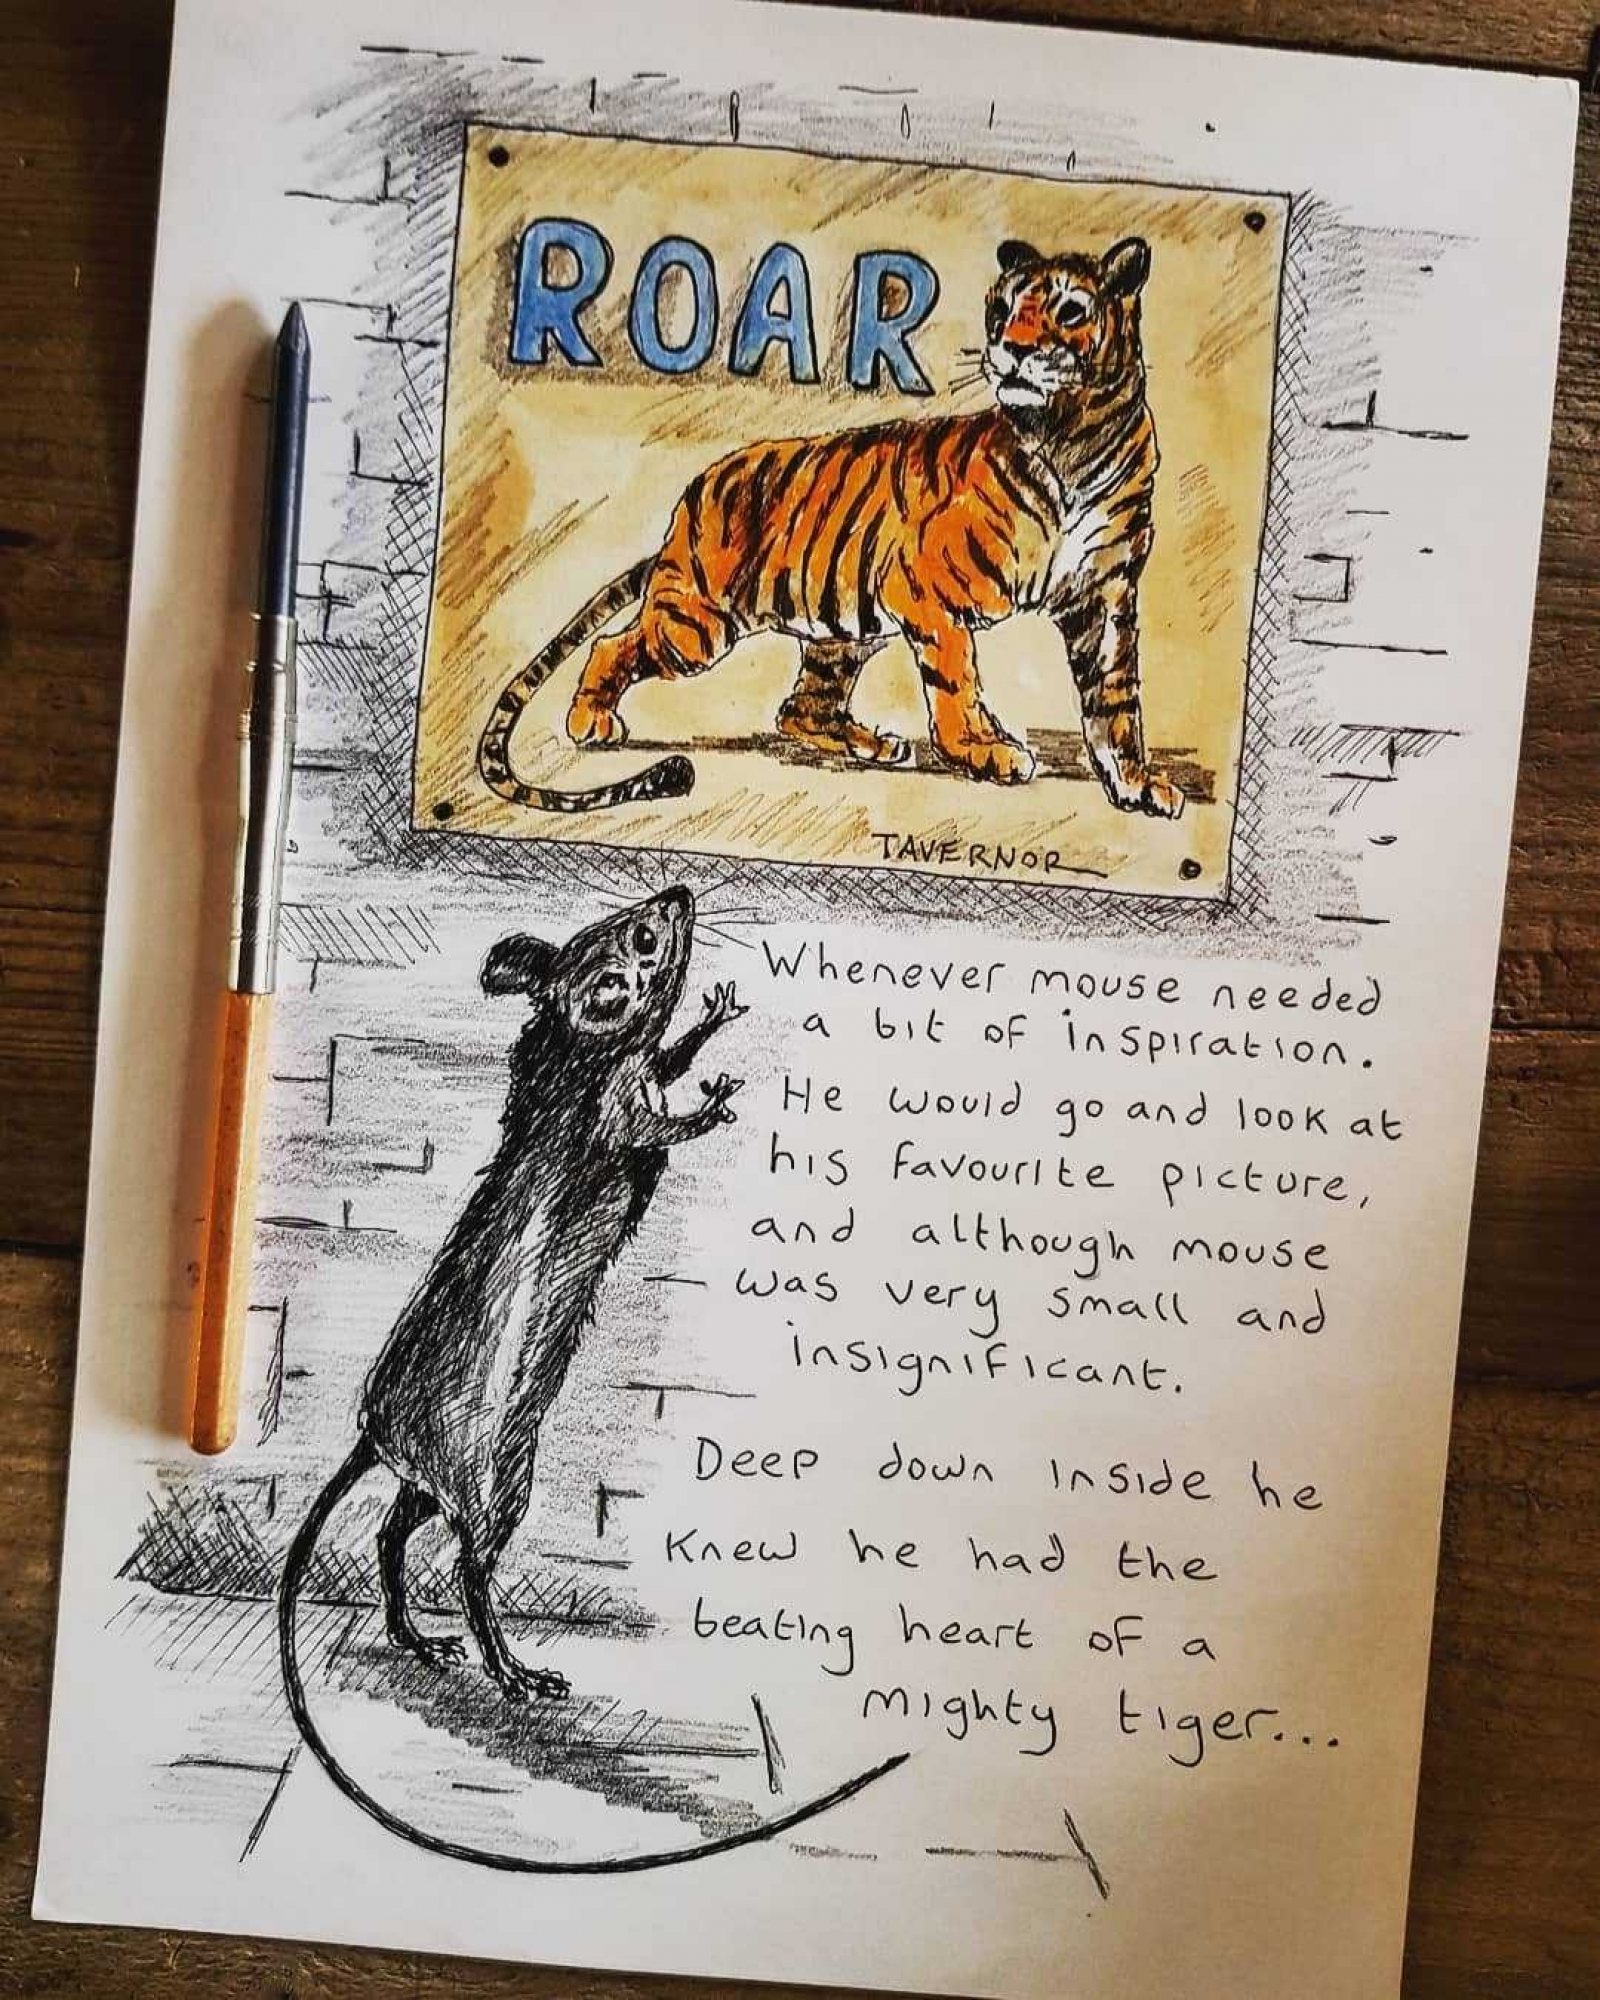 ROAR
TAVERNOR
Whenever mouse needed
a bit of inspiration.
He would go and look at
his favourite picture,
and although mouse
was very small and
insignificant.
Deep down inside he
Knew he had the
beating heart of a
mighty tiger...